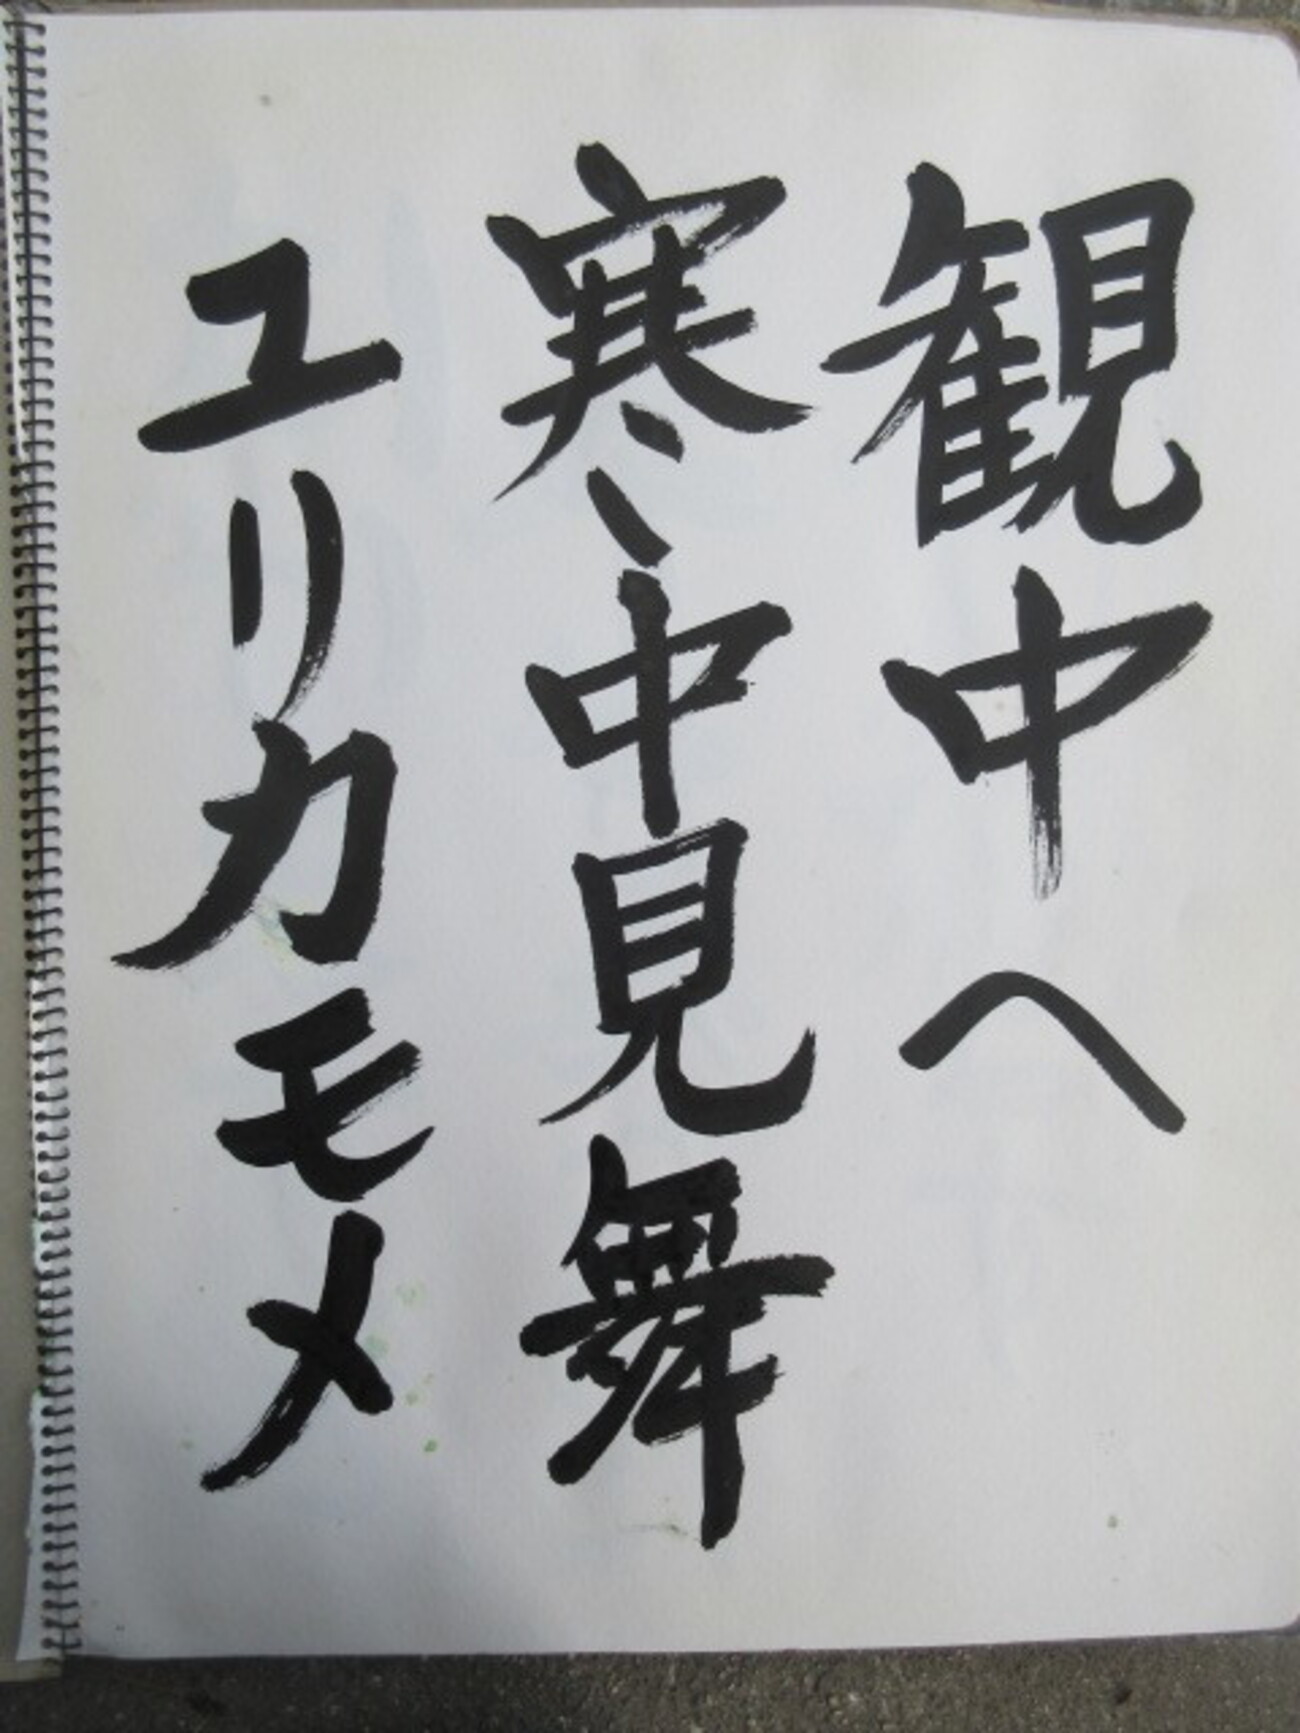 観中へ
寒中見舞
ユリカモメ